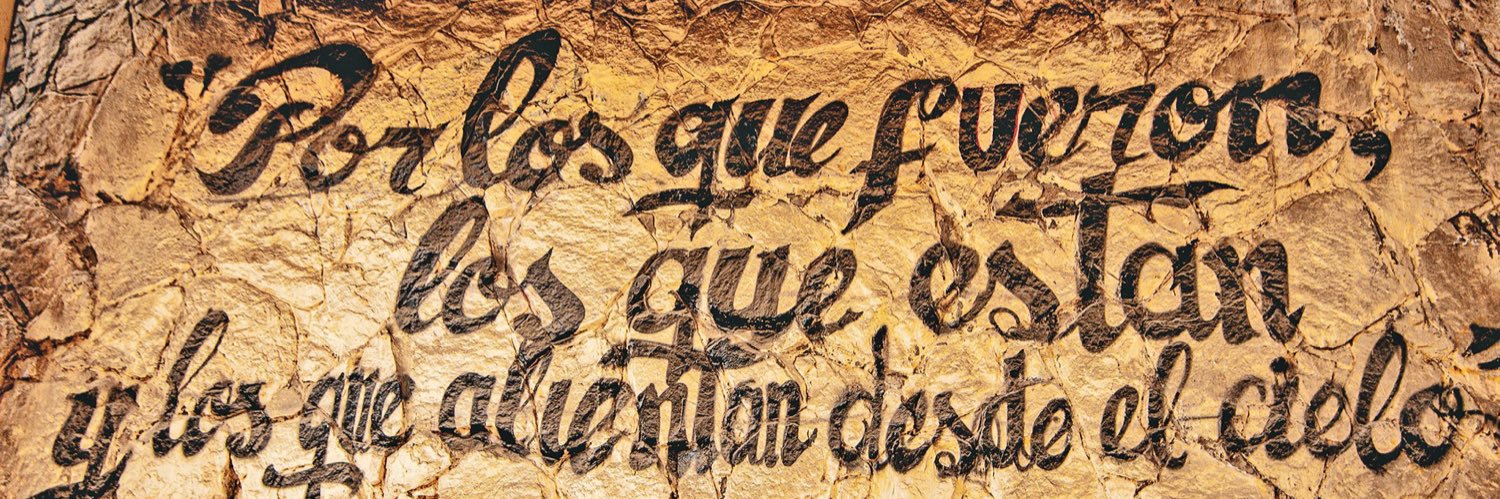 "Por los que fueron,
los que estan
y los que alientan desde el cielo"